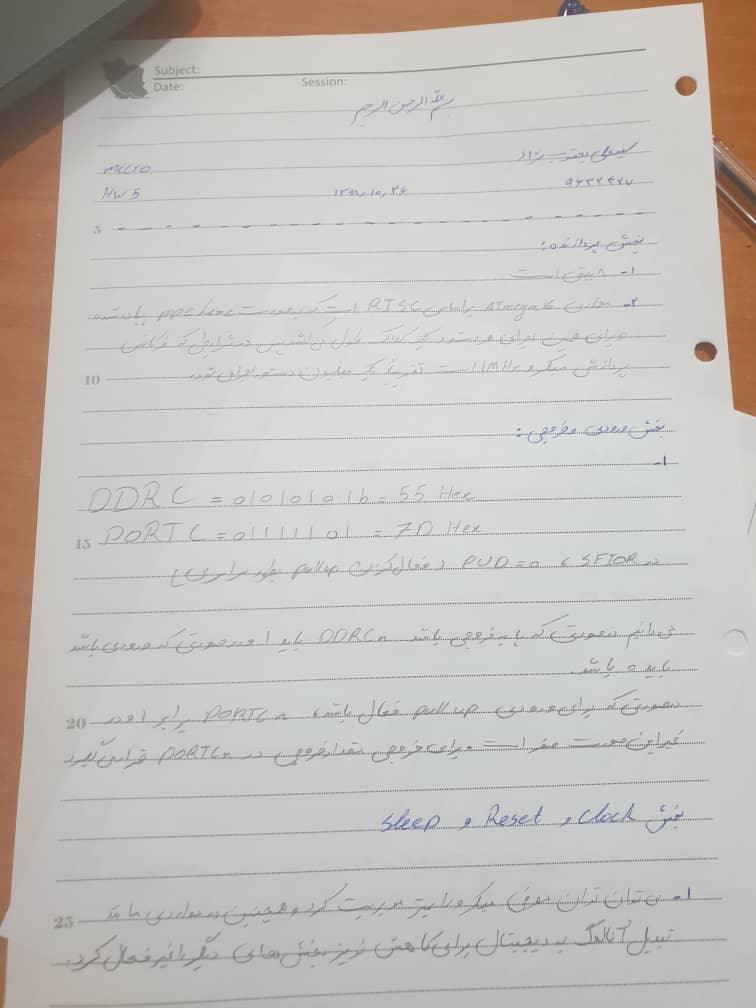 Subject:
Date:
Session:
بسم الله الرحمن الرحیم
micro
HW 5
۱۳۹۸,۱۰,۲۶
۹۶۳۲۴۲۷
5
بخش پردازنده:
۱- ۸ بیتی است
۲- معماری ATmega16 براساس RISC است که بصورت pipeline پیاده شده
برای همین اجرای هر دستور یک کلاک طول می‌کشد پس در شرایطی که فرکانس
10 پردازش میکرو 1MHz است تقریباً یک میلیون دستور اجرا می شود.
بخش ورودی و خروجی:
۱-
DDRC = 01010101b = 55 Hex
15 PORTC = 01111101 = 7D Hex
در SFIOR ، PUD=0 (فعال کردن pull up بطور سراسری)
می دانیم درصورتی که پایه خروجی باشد DDRCn باید 1 و درصورتی که ورودی باشد
باید 0 باشد.
20 درصورتی که برای ورودی pull up فعال باشد، PORTCn برابر 1 و در
غیر این صورت صفر است. برای خروجی مقدار خروجی در PORTCn قرار می گیرد
بخش Clock و Reset و Sleep
25 ۱- می توان توان مصرفی میکرو را نیز مدیریت کرد و همچنین در مواردی مانند
تبدیل آنالوگ به دیجیتال برای کاهش نویز بخش های دیگر را غیرفعال کرد.